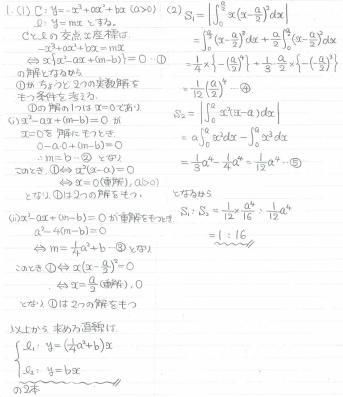 1. (1) C: y=-x³+ax²+bx (a>0)
l: y=mx とする。
Cとlの交点x座標は
-x³+ax²+bx=mx
⇔ x{x²-ax+(m-b)}=0 …①
の解となるから
①がちょうど2つの実数解を
もつ条件を考える。
①の解の1つはx=0であり
(i) x²-ax+(m-b)=0 が
x=0を解にもつとき
0-a・0+(m-b)=0
∴m=b …② となり
このとき、①⇔x²(x-a)=0
⇔x=0(重解), a(>0)
となり、①は2つの解をもつ。
(ii) x²-ax+(m-b)=0 が重解をもつとき
a²-4(m-b)=0
⇔ m=1/4a²+b …③ となり
このとき ①⇔x(x-a/2)²=0
⇔ x=a/2(重解), 0
となり ①は2つの解をもつ
以上から 求める直線は
l₁: y=(1/4a²+b)x
l₂: y=bx
の2本
(2) S₁=|∫₀^{a/2} x(x-a/2)²dx|
=∫₀^{a/2}(x-a/2)³dx+a/2∫₀^{a/2}(x-a/2)²dx
=1/4×{-(a/2)⁴}+1/3・a/2×{-(-a/2)³}
=1/12(a/2)⁴ …④
S₂=|∫₀^a x²(x-a)dx|
=a∫₀^a x²dx-∫₀^a x³dx
=1/3a⁴-1/4a⁴=1/12a⁴ …⑤
となるから
S₁:S₂=1/12×a⁴/16:1/12a⁴
=1:16